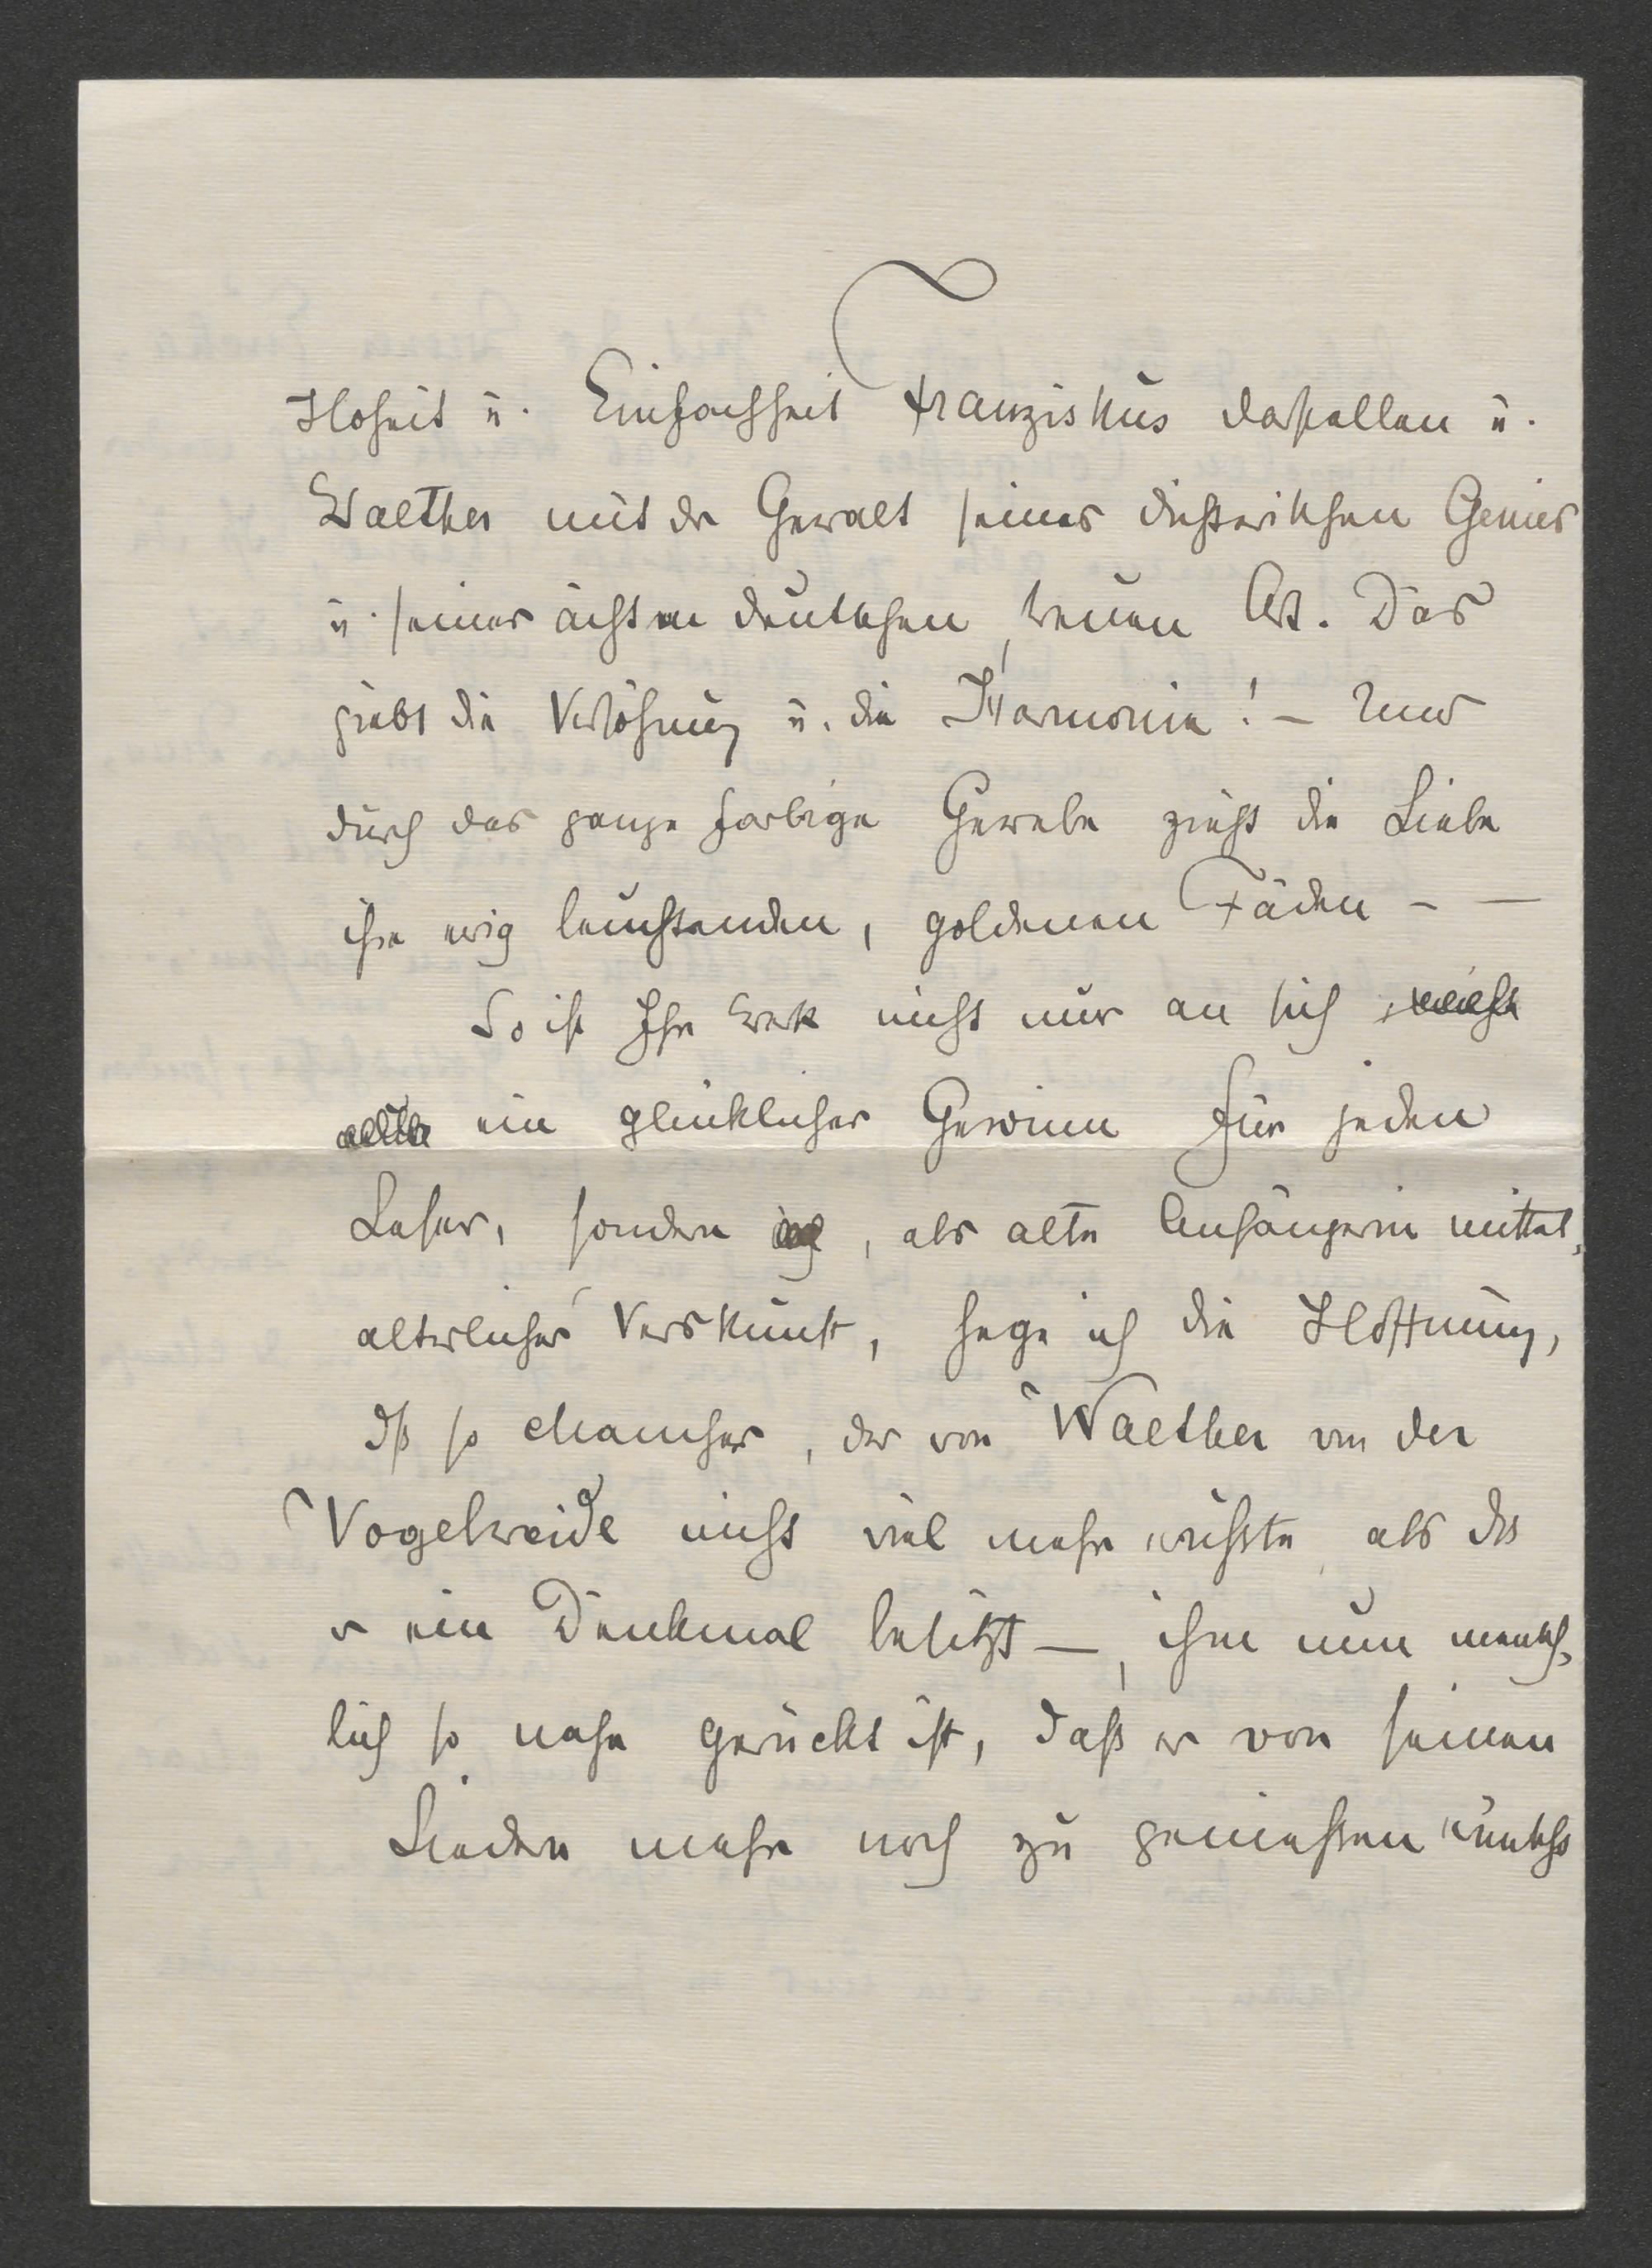 Hoheit u. Einfachheit Franziskus darstellen u.
Walther mit der Gewalt seines dichterischen Genies
u. seiner ächten deutschen, treuen Art. Das
giebt die Versöhnung u. die Harmonie! – Und
durch das ganze farbige Gewebe zieht die Liebe
ihre ewig leuchtenden, goldenen Fäden – —
So ist Ihr Werk nicht nur an sich
ein glücklicher Gewinn für jeden
Leser, sondern, als alte Anhängerin mittel-
alterlicher Verskunst, hege ich die Hoffnung,
dß so Mancher, der von Walther von der
Vogelweide nicht viel mehr wußte, als dß
er ein Denkmal besitzt —, ihm nun mensch-
lich so nahe gerückt ist, daß er von seinen
Liedern mehr noch zu genießen wünscht